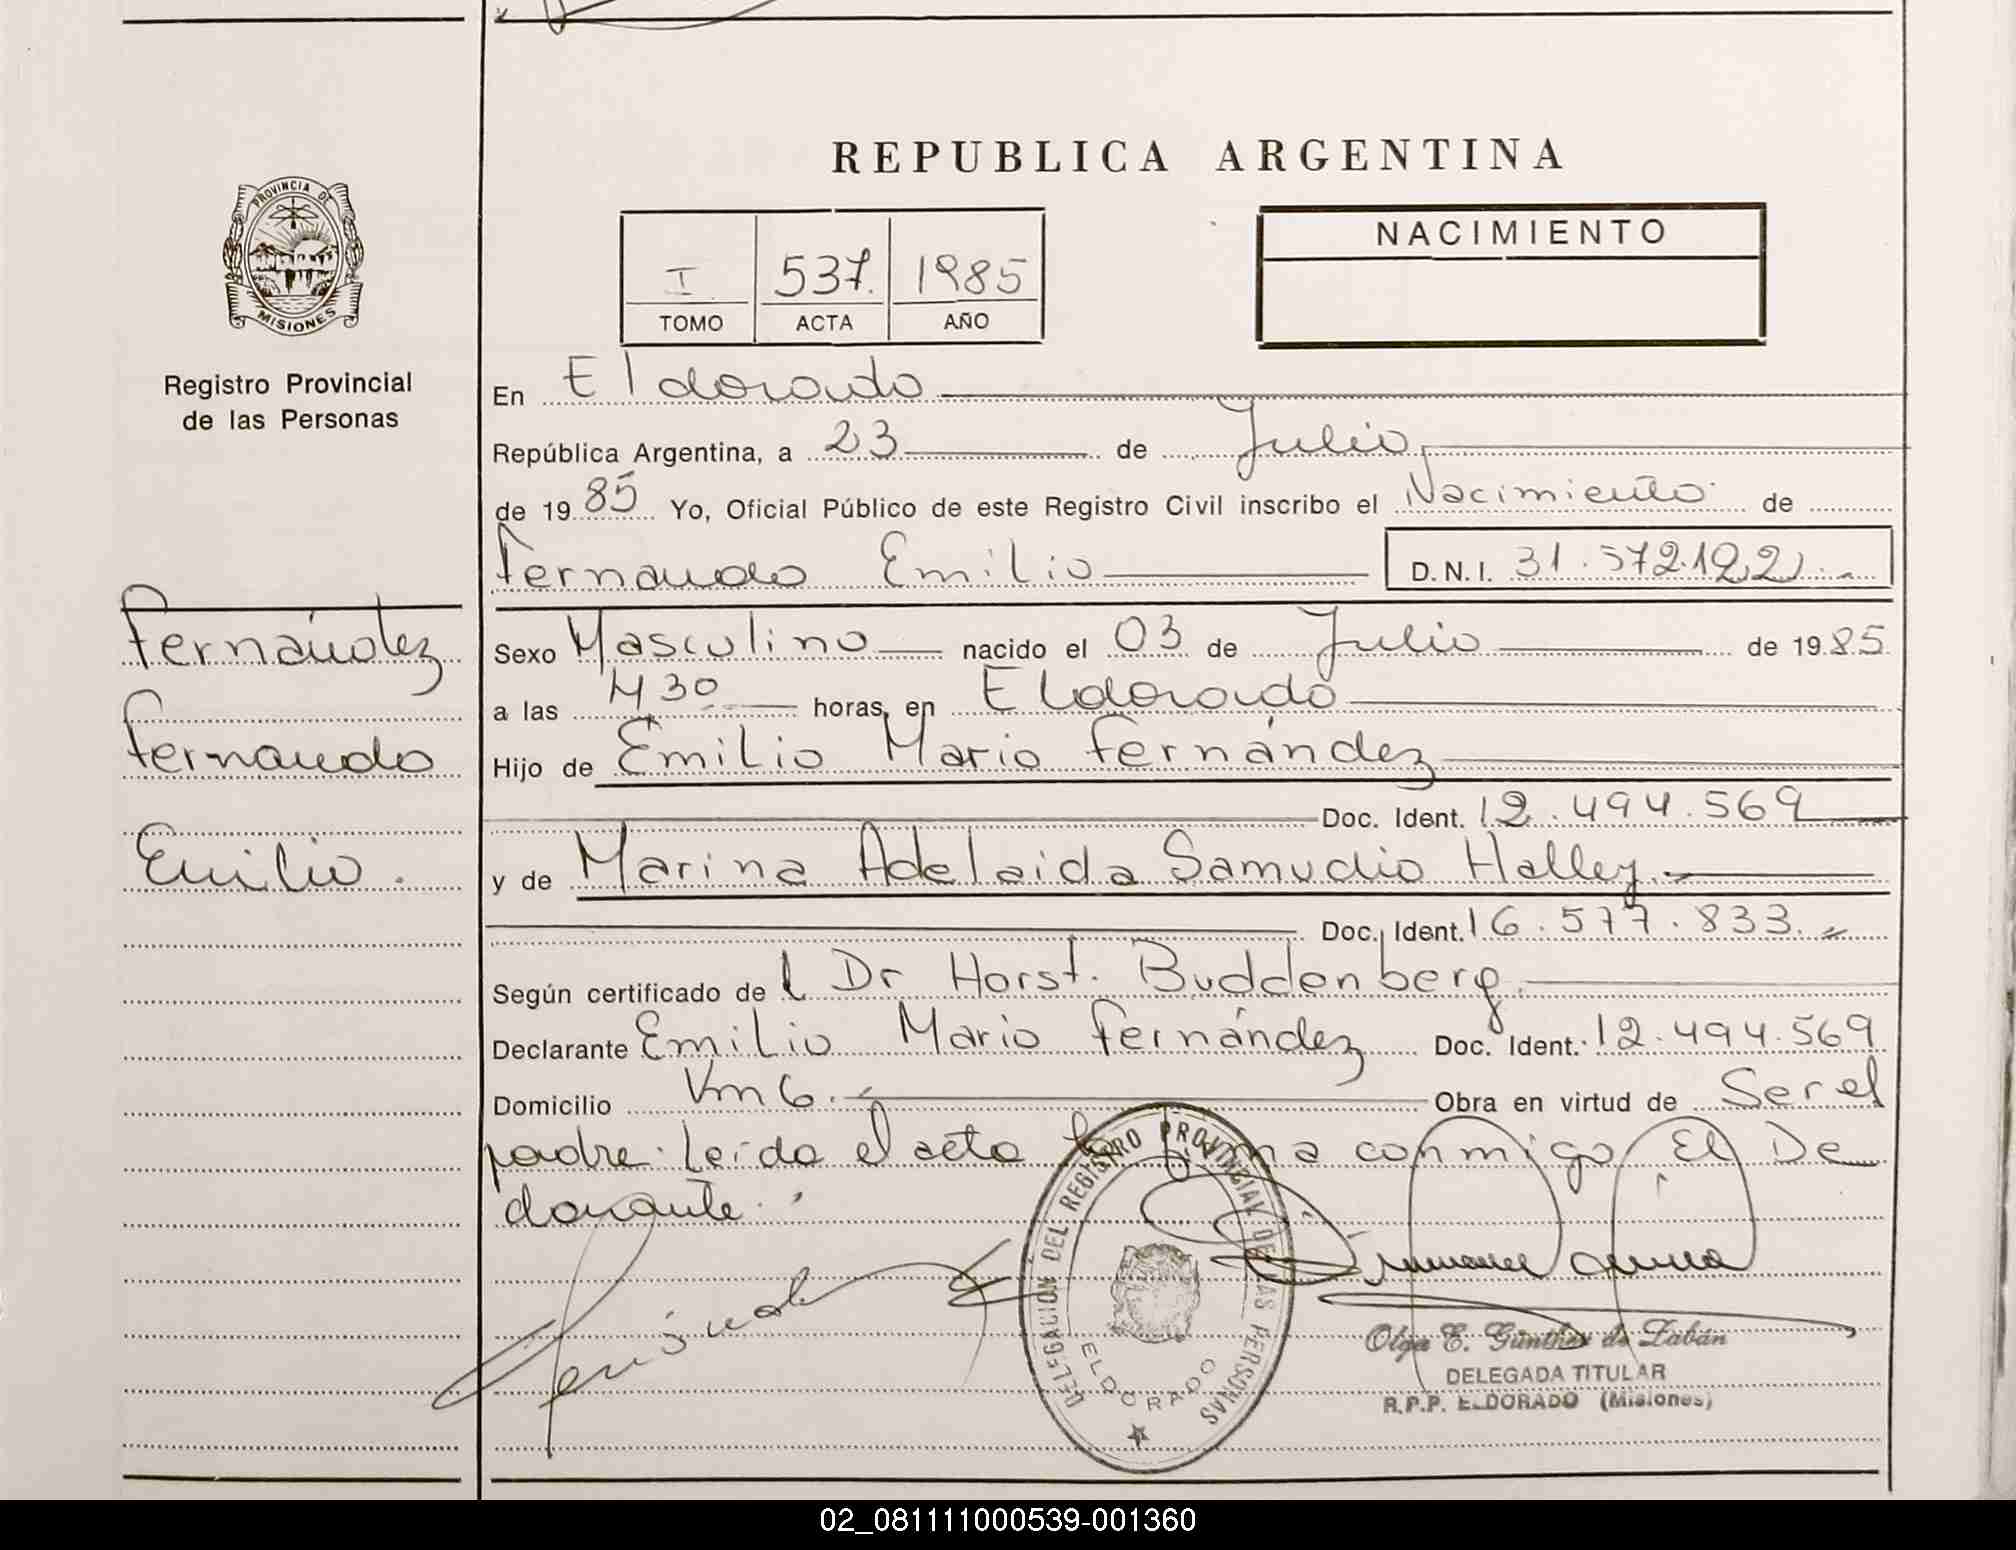 REPUBLICA ARGENTINA
PROVINCIA DE
MISIONES
Registro Provincial
de las Personas
I 537. 1985
TOMO ACTA AÑO
NACIMIENTO
En Eldorado
República Argentina, a 23 de Julio
de 1985 Yo, Oficial Público de este Registro Civil inscribo el Nacimiento de
Fernando Emilio D.N.I. 31.572.122
Fernández
Fernando
Emilio.
Sexo Masculino nacido el 03 de Julio de 1985
a las horas, en Eldorado
Hijo de Emilio Mario Fernández
Doc. Ident. 12.494.569
y de Marina Adelaida Samudio Halley
Doc. Ident. 16.577.833.
Según certificado del Dr Horst. Buddenberg.
Declarante Emilio Mario Fernández Doc. Ident. 12.494.569
Domicilio Km 6. Obra en virtud de Ser el
padre. Leída el acta la firma conmigo El De
clarante.
DELEGACION DEL REGISTRO PROVINCIAL DE LAS PERSONAS
ELDORADO
Olga E. Günther de Labán
DELEGADA TITULAR
R.P.P. ELDORADO (Misiones)
02_081111000539-001360